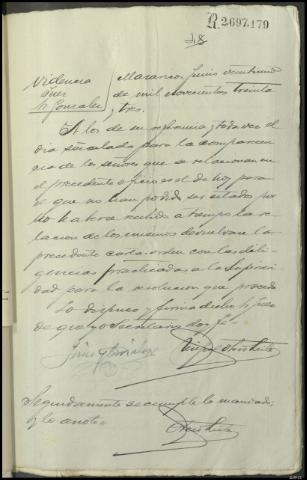 R.2697.179
48
Providencia
Juez
Sr. Gonzalez
Junio veintiuno
de mil novecientos treinta
y tres.
A los de su referencia y toda vez el
dia señalado para la comparecen
cia de los señores que se relacionan en
el precedente oficio es el de hoy por
lo que no han podido ser citados por
no haberse recibido a tiempo la re
lacion de los mismos devuelvase la
precedente carta-orden con las dili
gencias practicadas a la Superiori
dad para la resolucion que proceda
Lo dispuso y firma dicho Sr Juez
de que yo Secretario doy fe.
Seguidamente se cumple lo mandado
y lo anoto.